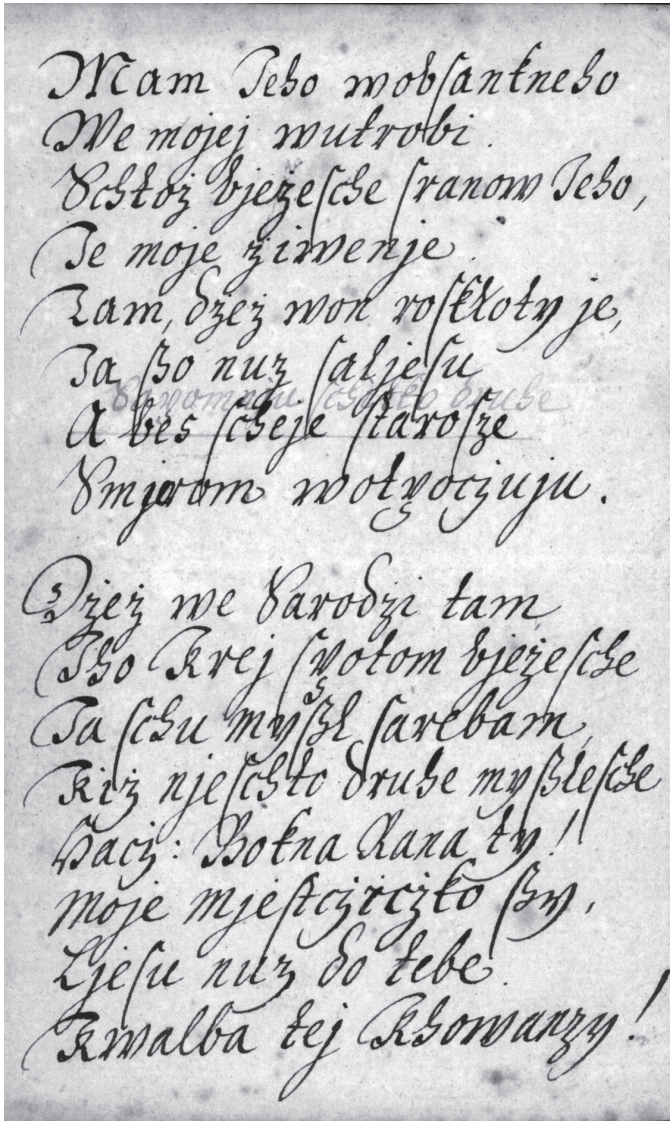 Mam Jeho wobſankneho
We mojej wutrobi
Schtoż bjeżeſche ſranow Jeho,
Je moje żiwenje
Tam, dżeż won roſkłoty je,
Ja ßo nuz ſaljeſu
A bes ſcheje ſtaroſze
Smjerom wotpoczuju.
Dżeż we Sarodzi tam
Jho Krej ſpotom bjeżeſche
Ja ſchu myßl ſarebam,
Kiż njeſchto druhe myßleſche
Hacż: Bokna Rana ty!
Moje mjeſtcżicżko ßy,
Ljeſu nuz do tebe
Kwalba tej Khowanzy!